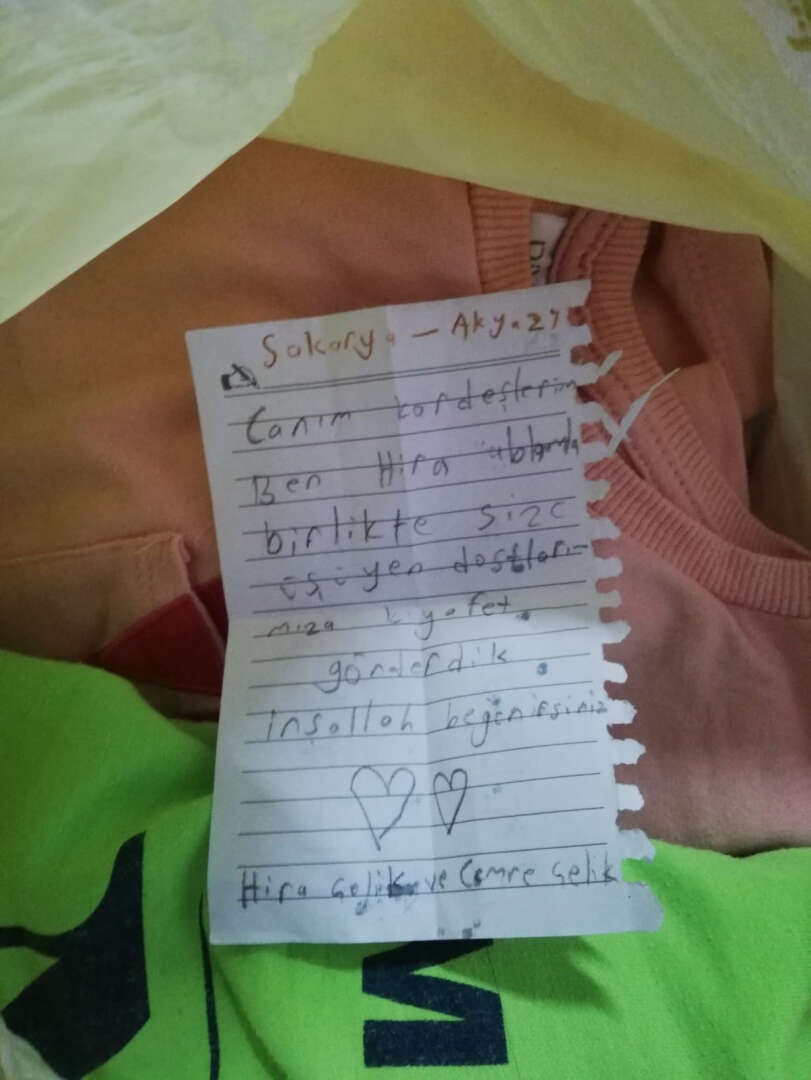 Sakarya - Akyazı
Canım kardeşlerim
Ben Hira ablamla
birlikte size
üşüyen dostları-
mıza kıyafet
gönderdik.
İnşallah beğenirsiniz
Hira Çelik ve Cemre Çelik
M